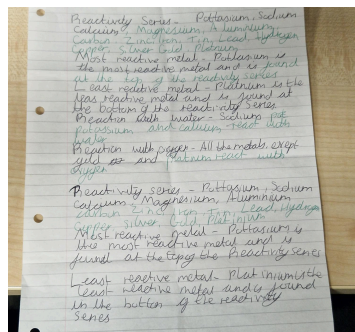 Reactivity Series - Pottasium, Sodium
Calcium, Magnesium, Aluminium
Carbon Zinc Iron Tin, Lead, Hydrogen
Copper, Silver Gold, Platnium
Most reactive metal - Pottasium is
the most reactive metal and is found
at the top of the reactivity series
Least reactive metal - Platnium is the
leas reactive metal and is found at
the bottom of the reactivity series
Reaction with water - Sodium
potassium and calcium react with
water
Reaction with oxygen - All the metals, exept
gold and react with
oxygen
Reactivity series - Pottasium, Sodium
Calcium, Magnesium, Aluminium
carbon Zinc Iron Lead, Hydrogen
copper, silver, Gold, Platinium
Most reactive metal - Pottasium is
the most reactive metal and is
found at the top of the Reactivity Series
Least reactive metal - Platinium is the
least reactive metal and is found
in the button of the reactivity
series